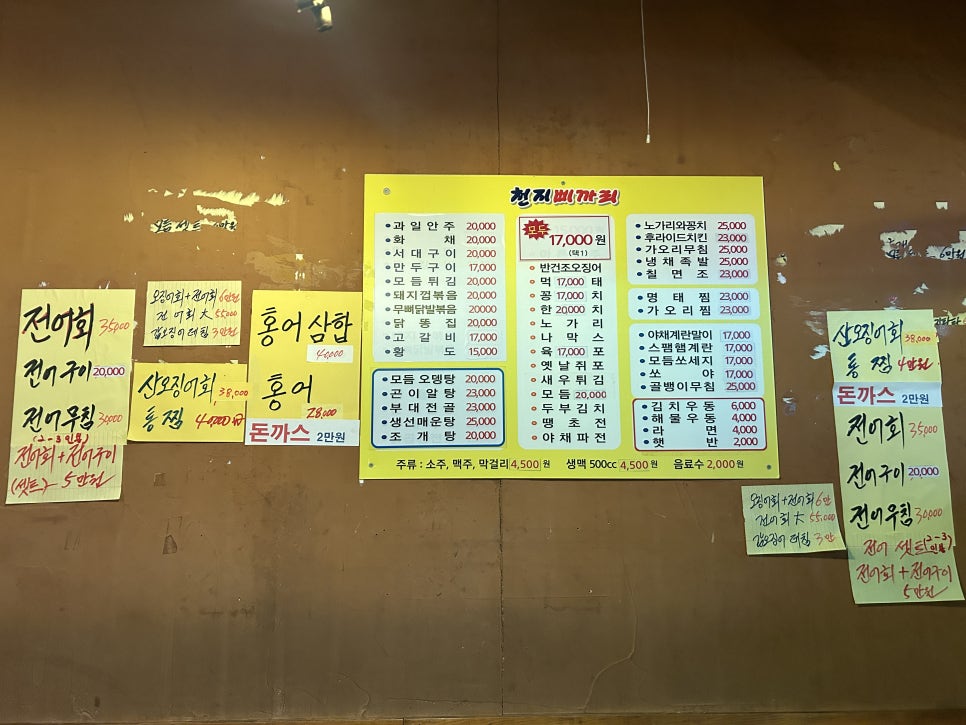 전어회 35,000
전어구이 20,000
전어무침 30,000
(2-3인용)
전어회+전어구이
(셋트)- 5만원
오징어회+전어회 6만원
전어회 大 55,000
갑오징어데침 3만원
산오징어회 38,000
통찜 40,000
홍어삼합
40,000
홍어
28,000
돈까스 2만원
천지삐까리
과일안주 20,000
화채 20,000
서대구이 20,000
만두구이 17,000
모듬튀김 20,000
돼지껍볶음 20,000
무뼈닭발볶음 20000
닭똥집 20,000
고갈비 17,000
황도 15,000
모듬오뎅탕 20,000
곤이알탕 23,000
부대전골 23,000
생선매운탕 25,000
조개탕 20,000
모두
17,000원
(택1)
반건조오징어
먹17,000태
꽁17,000치
한20,000치
노가리
나막스
육17,000포
옛날쥐포
새우튀김
모듬20,000
두부김치
땡초전
야채파전
노가리와꽁치 25,000
후라이드치킨 23,000
가오리무침 25,000
냉채족발 25,000
칠면조 23,000
명태찜 23,000
가오리찜 23,000
야채계란말이 17,000
스팸햄계란 17,000
모듬쏘세지 17,000
쏘야 17,000
골뱅이무침 25,000
김치우동 6,000
해물우동 4,000
라면 4,000
햇반 2,000
주류 : 소주, 맥주, 막걸리 4,500원 생맥 500cc 4,500원 음료수 2,000원
오징어회+전어회 6만
전어회 大 55,000
갑오징어데침 3만
산오징어회 38,000
통찜 4만원
돈까스 2만원
전어회 35,000
전어구이 20,000
전어무침 30,000
전어 셋트(2-3인용)
전어회+전어구이
5만원